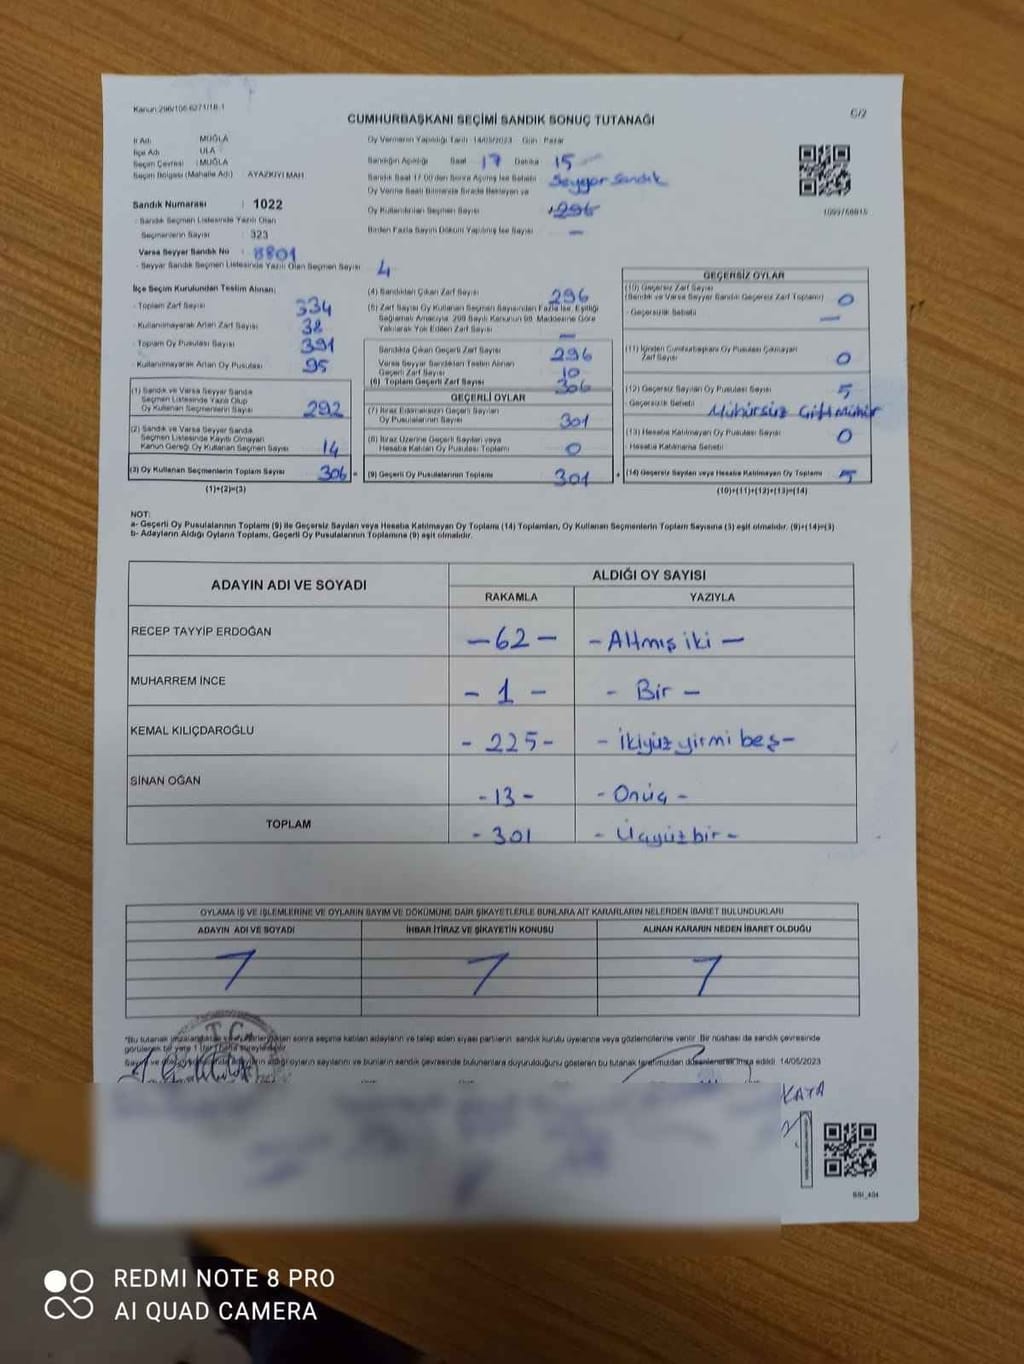 Kanun:296/106-6271/18-1
CUMHURBAŞKANI SEÇİMİ SANDIK SONUÇ TUTANAĞI
C/2
İl Adı : MUĞLA
İlçe Adı : ULA
Seçim Çevresi : MUĞLA
Seçim Bölgesi (Mahalle Adı) : AYAZKIYI MAH
Sandık Numarası : 1022
- Sandık Seçmen Listesinde Yazılı Olan
Seçmenlerin Sayısı : 323
Varsa Seyyar Sandık No : 8801
- Seyyar Sandık Seçmen Listesinde Yazılı Olan Seçmen Sayısı 4
Oy Vermenin Yapıldığı Tarih :14/05/2023 Gün : Pazar
Sandığın Açıldığı Saat 17 Dakika 15
Sandık Saat 17.00'den Sonra Açılmış İse Sebebi Seyyar Sandık
Oy Verme Saati Bitiminde Sırada Bekleyen ve
Oy Kullandırılan Seçmen Sayısı 296
Birden Fazla Sayım Döküm Yapılmış İse Sayısı —
1099768815
İlçe Seçim Kurulundan Teslim Alınan;
- Toplam Zarf Sayısı 334
- Kullanılmayarak Artan Zarf Sayısı 38
- Toplam Oy Pusulası Sayısı 391
- Kullanılmayarak Artan Oy Pusulası 95
(1) Sandık ve Varsa Seyyar Sandık
Seçmen Listesinde Yazılı Olup
Oy Kullanan Seçmenlerin Sayısı 292
(2) Sandık ve Varsa Seyyar Sandık
Seçmen Listesinde Kayıtlı Olmayan
Kanun Gereği Oy Kullanan Seçmen Sayısı 14
(3) Oy Kullanan Seçmenlerin Toplam Sayısı 306
(1)+(2)=(3)
(4) Sandıktan Çıkan Zarf Sayısı 296
(5) Zarf Sayısı Oy Kullanan Seçmen Sayısından Fazla İse, Eşitliği
Sağlamak Amacıyla 298 Sayılı Kanunun 98. Maddesine Göre
Yakılarak Yok Edilen Zarf Sayısı —
Sandıkta Çıkan Geçerli Zarf Sayısı 296
Varsa Seyyar Sandıktan Teslim Alınan
Geçerli Zarf Sayısı 10
(6) Toplam Geçerli Zarf Sayısı 306
GEÇERLİ OYLAR
(7) İtiraz Edilmeksizin Geçerli Sayılan
Oy Pusulalarının Sayısı 301
(8) İtiraz Üzerine Geçerli Sayılan veya
Hesaba Katılan Oy Pusulaları Toplamı 0
(9) Geçerli Oy Pusulalarının Toplamı 301
GEÇERSİZ OYLAR
(10) Geçersiz Zarf Sayısı
(Sandık ve Varsa Seyyar Sandık Geçersiz Zarf Toplamı) 0
- Geçersizlik Sebebi —
(11) İçinden Cumhurbaşkanı Oy Pusulası Çıkmayan
Zarf Sayısı 0
(12) Geçersiz Sayılan Oy Pusulası Sayısı 5
- Geçersizlik Sebebi Mühürsüz Çift mühür
(13) Hesaba Katılmayan Oy Pusulası Sayısı 0
- Hesaba Katılmama Sebebi
(14) Geçersiz Sayılan veya Hesaba Katılmayan Oy Toplamı 5
(10)+(11)+(12)+(13)=(14)
NOT:
a- Geçerli Oy Pusulalarının Toplamı (9) ile Geçersiz Sayılan veya Hesaba Katılmayan Oy Toplamı (14) Toplamları, Oy Kullanan Seçmenlerin Toplam Sayısına (3) eşit olmalıdır. (9)+(14)=(3)
b- Adayların Aldığı Oyların Toplamı, Geçerli Oy Pusulalarının Toplamına (9) eşit olmalıdır.
ADAYIN ADI VE SOYADI
ALDIĞI OY SAYISI
RAKAMLA YAZIYLA
RECEP TAYYİP ERDOĞAN -62- -Altmış iki-
MUHARREM İNCE -1- -Bir-
KEMAL KILIÇDAROĞLU -225- -İkiyüz yirmi beş-
SİNAN OĞAN -13- -Onüç-
TOPLAM -301 -Üçyüz bir-
OYLAMA İŞ VE İŞLEMLERİNE VE OYLARIN SAYIM VE DÖKÜMÜNE DAİR ŞİKAYETLERLE BUNLARA AİT KARARLARIN NELERDEN İBARET BULUNDUKLARI
ADAYIN ADI VE SOYADI İHBAR İTİRAZ VE ŞİKAYETİN KONUSU ALINAN KARARIN NEDEN İBARET OLDUĞU
*Bu tutanak sonra seçime katılan adayların ve talep eden siyasi partilerin sandık kurulu üyelerine veya gözlemcilerine verilir. Bir nüshası da sandık çevresinde
görülecek bir yere
aldığı oyların sayılarını ve bunların sandık çevresinde bulunanlara duyurulduğunu gösteren bu tutanak tarafımızdan düzenlenerek imza edildi. 14/05/2023
T.C.
KAYA
SSI_404
REDMI NOTE 8 PRO
AI QUAD CAMERA